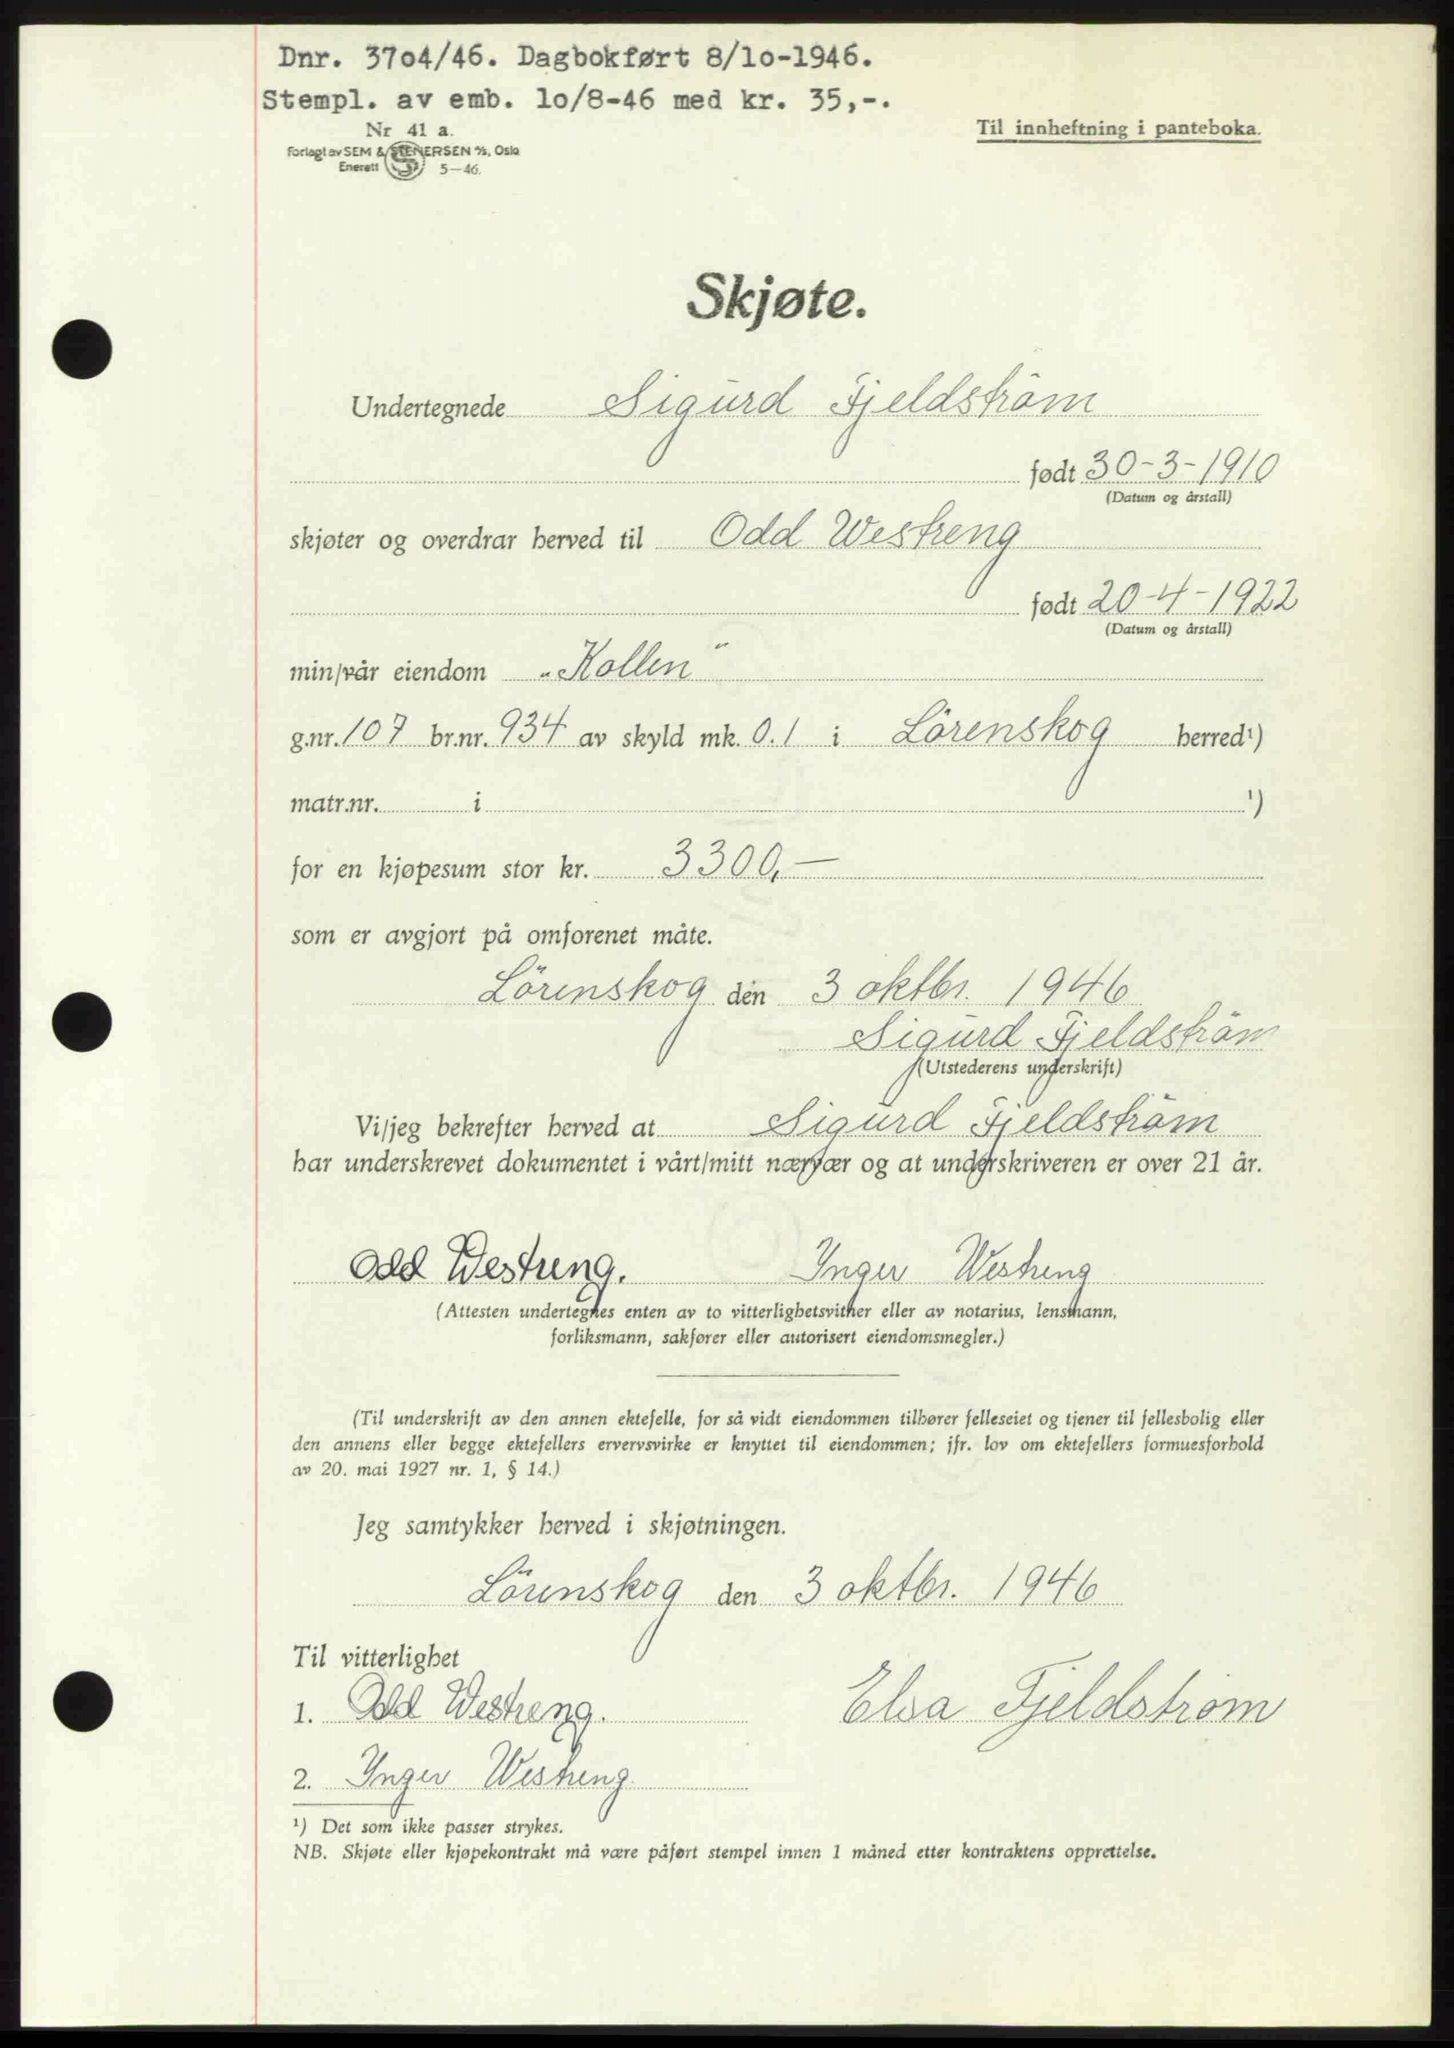 Dnr. 3704/46. Dagbokført 8/10-1946.
Stempl. av emb. 10/8-46 med kr. 35,-.
Nr 41 a.
Forlagt av SEM & STENERSEN A/S, Oslo
Enerett 5-46.
Til innheftning i panteboka.
Skjøte.
Undertegnede Sigurd Fjeldström
født 30-3-1910
(Datum og årstall)
skjøter og overdrar herved til Odd Westreng
født 20-4-1922
(Datum og årstall)
min/vår eiendom "Kollen"
g.nr. 107 br.nr. 934 av skyld mk. 0.1 i Lörenskog herred¹)
matr.nr. i ¹)
for en kjøpesum stor kr. 3300,—
som er avgjort på omforenet måte.
Lörenskog den 3 oktbr. 1946
Sigurd Fjeldström
(Utstederens underskrift)
Vi/jeg bekrefter herved at Sigurd Fjeldström
har underskrevet dokumentet i vårt/mitt nærvær og at underskriveren er over 21 år.
Odd Westreng. Inger Westreng
(Attesten undertegnes enten av to vitterlighetsvitner eller av notarius, lensmann,
forliksmann, sakfører eller autorisert eiendomsmegler.)
(Til underskrift av den annen ektefelle, for så vidt eiendommen tilhører felleseiet og tjener til fellesbolig eller
den annens eller begge ektefellers ervervsvirke er knyttet til eiendommen; jfr. lov om ektefellers formuesforhold
av 20. mai 1927 nr. 1, § 14.)
Jeg samtykker herved i skjøtningen.
Lörenskog den 3 oktbr. 1946
Til vitterlighet
1. Odd Westreng. Elsa Fjeldstrøm
2. Inger Westreng
¹) Det som ikke passer strykes.
NB. Skjøte eller kjøpekontrakt må være påført stempel innen 1 måned etter kontraktens opprettelse.